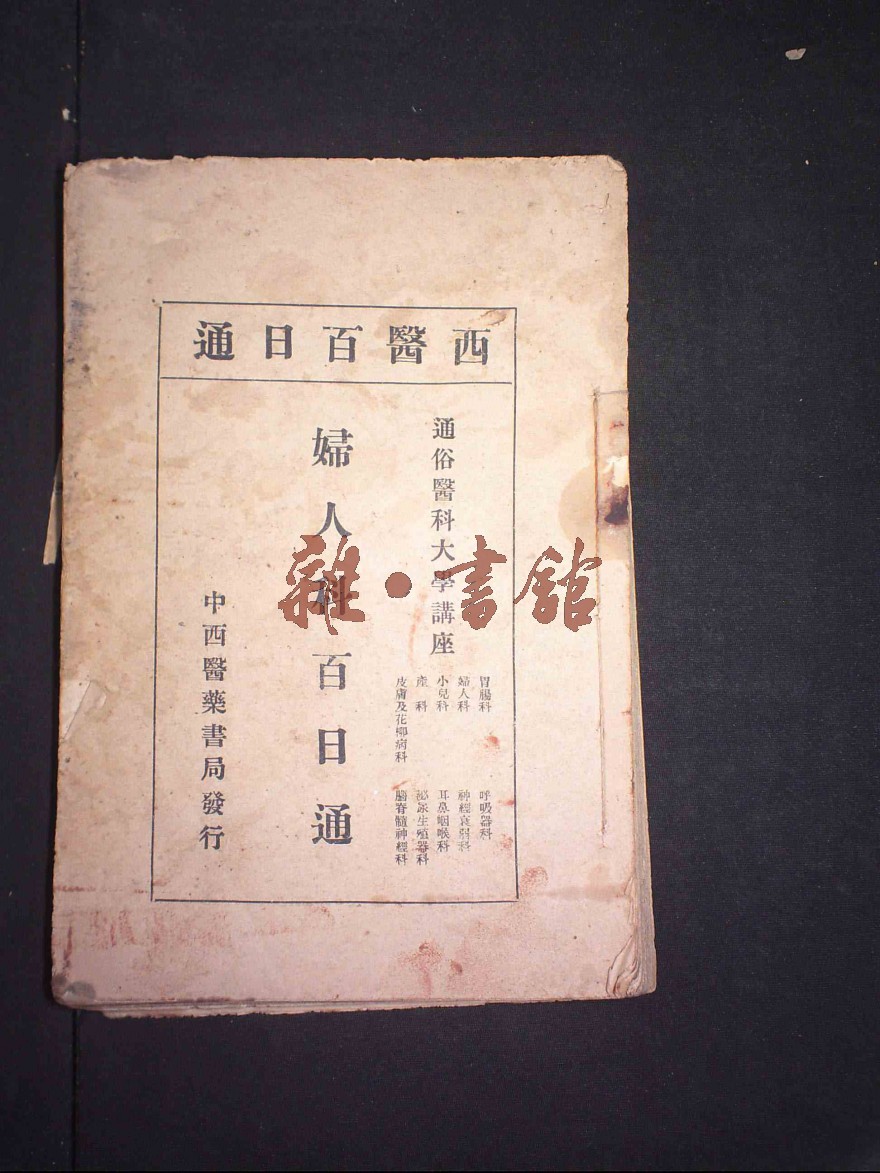 西醫百日通
通俗醫科大學講座
胃腸科
呼吸器科
婦人科
神經衰弱科
小兒科
耳鼻咽喉科
產科
泌尿生殖器科
皮膚及花柳病科
腦脊髓神經科
婦人科百日通
中西醫藥書局發行
雜·書館